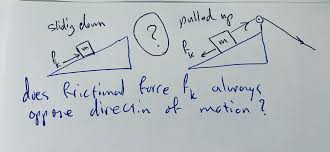 sliding down
pulled up
?
fk
m
fk
m
does frictional force fk always
oppose direction of motion?